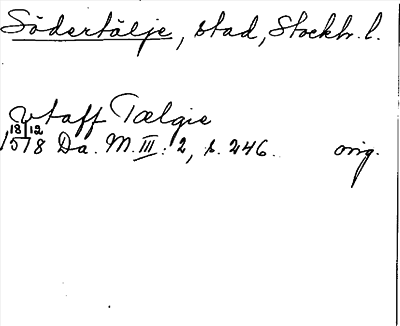 Södertälje, stad, Stockh. l.
vtaff Tælgie
18/12
1578 Da. M. III: 2, s. 246. orig.